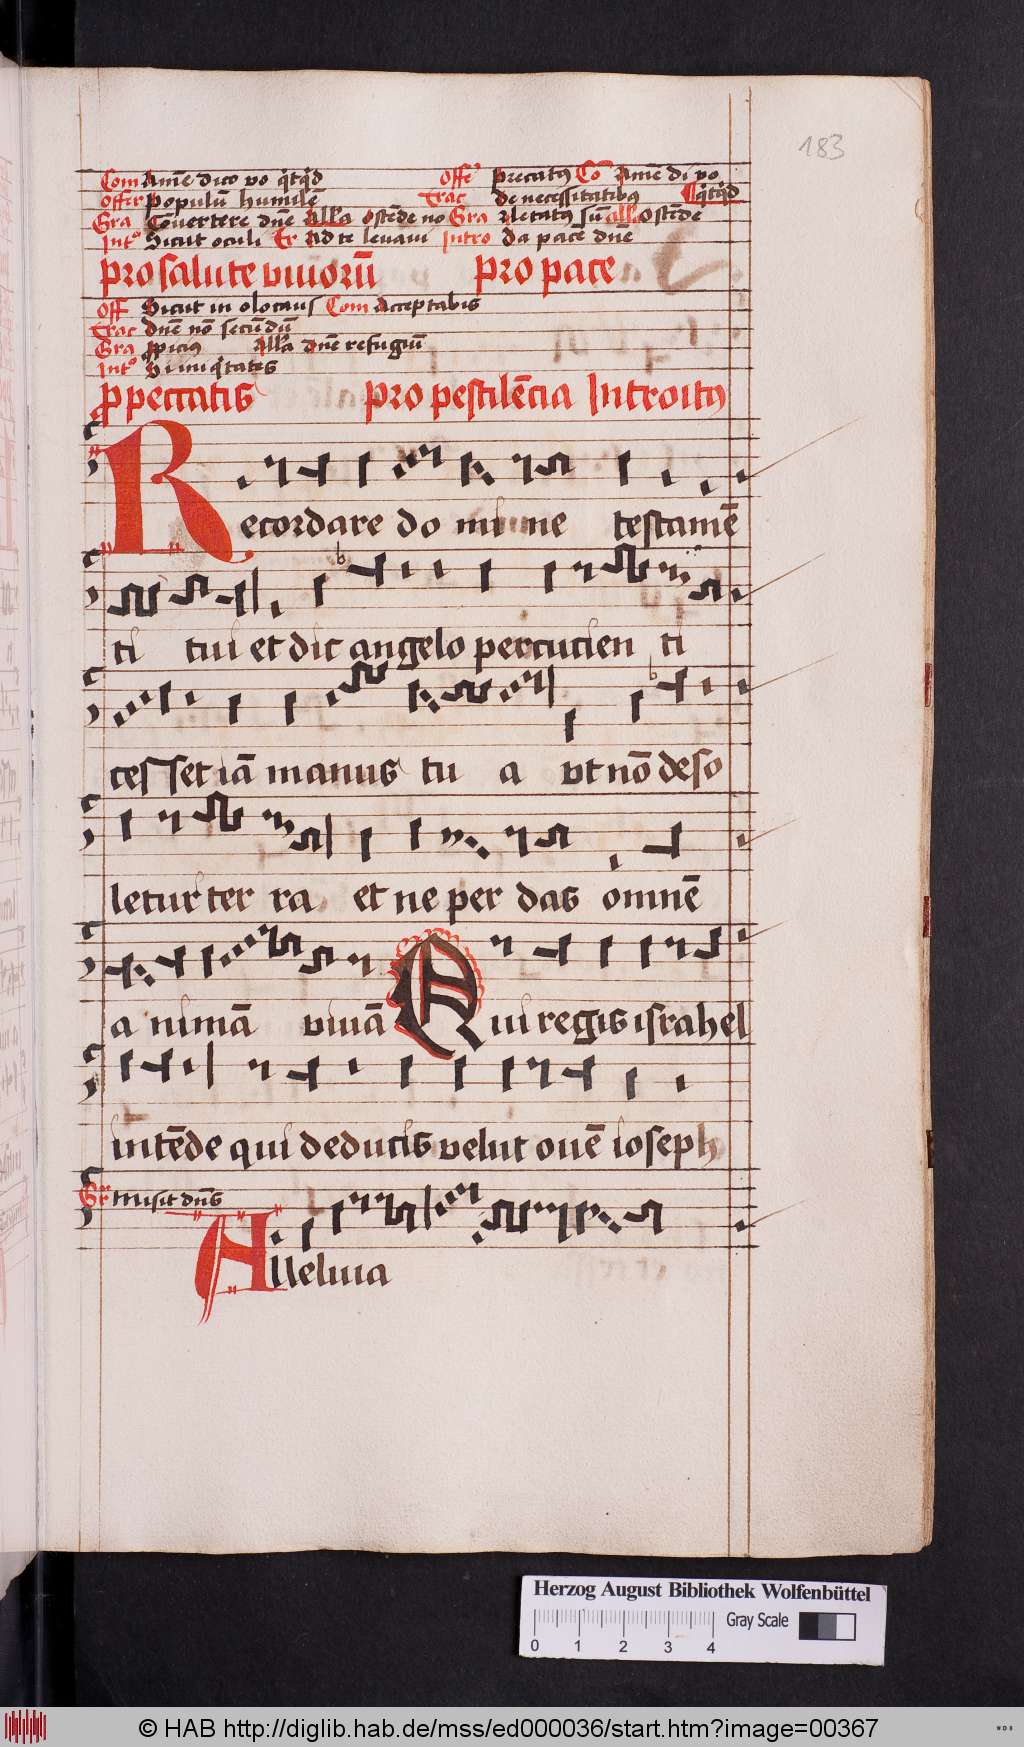 183
Com Amē dico vo q̄tq̄d Offeʳ Precatꝰ Cō Amē di vo
Offer Populū humilē Trac de necessitatibꝰ q̄tq̄d
Gra Cōuertere dn̄e All'a Ostēde no Gra Letatꝰ sū all'a Ostēde
Intᵒ Sicut oculi Tr Ad te leuaui Intro Da pacē dn̄e
pro salute viuorū pro pace
Off Sicut in olocaus Com Acceptabis
Trac dn̄e nō secūdū
Gra ꝓpicius All'a dn̄e refugiū
Intᵒ Si iniq̄tates
ꝓ peccatis pro pestilēcia Introitꝰ
Recordare domine testamē
ti tui et dic angelo percucien ti
ces set iā manus tu a vt nō deso
letur ter ra et ne per das omnē
a nimā viuā Qui regis israhel
intēde qui deducis velut ouē ioseph
Gr Misit dn̄s
Alleluia
Herzog August Bibliothek Wolfenbüttel
Gray Scale
0 1 2 3 4
© HAB http://diglib.hab.de/mss/ed000036/start.htm?image=00367